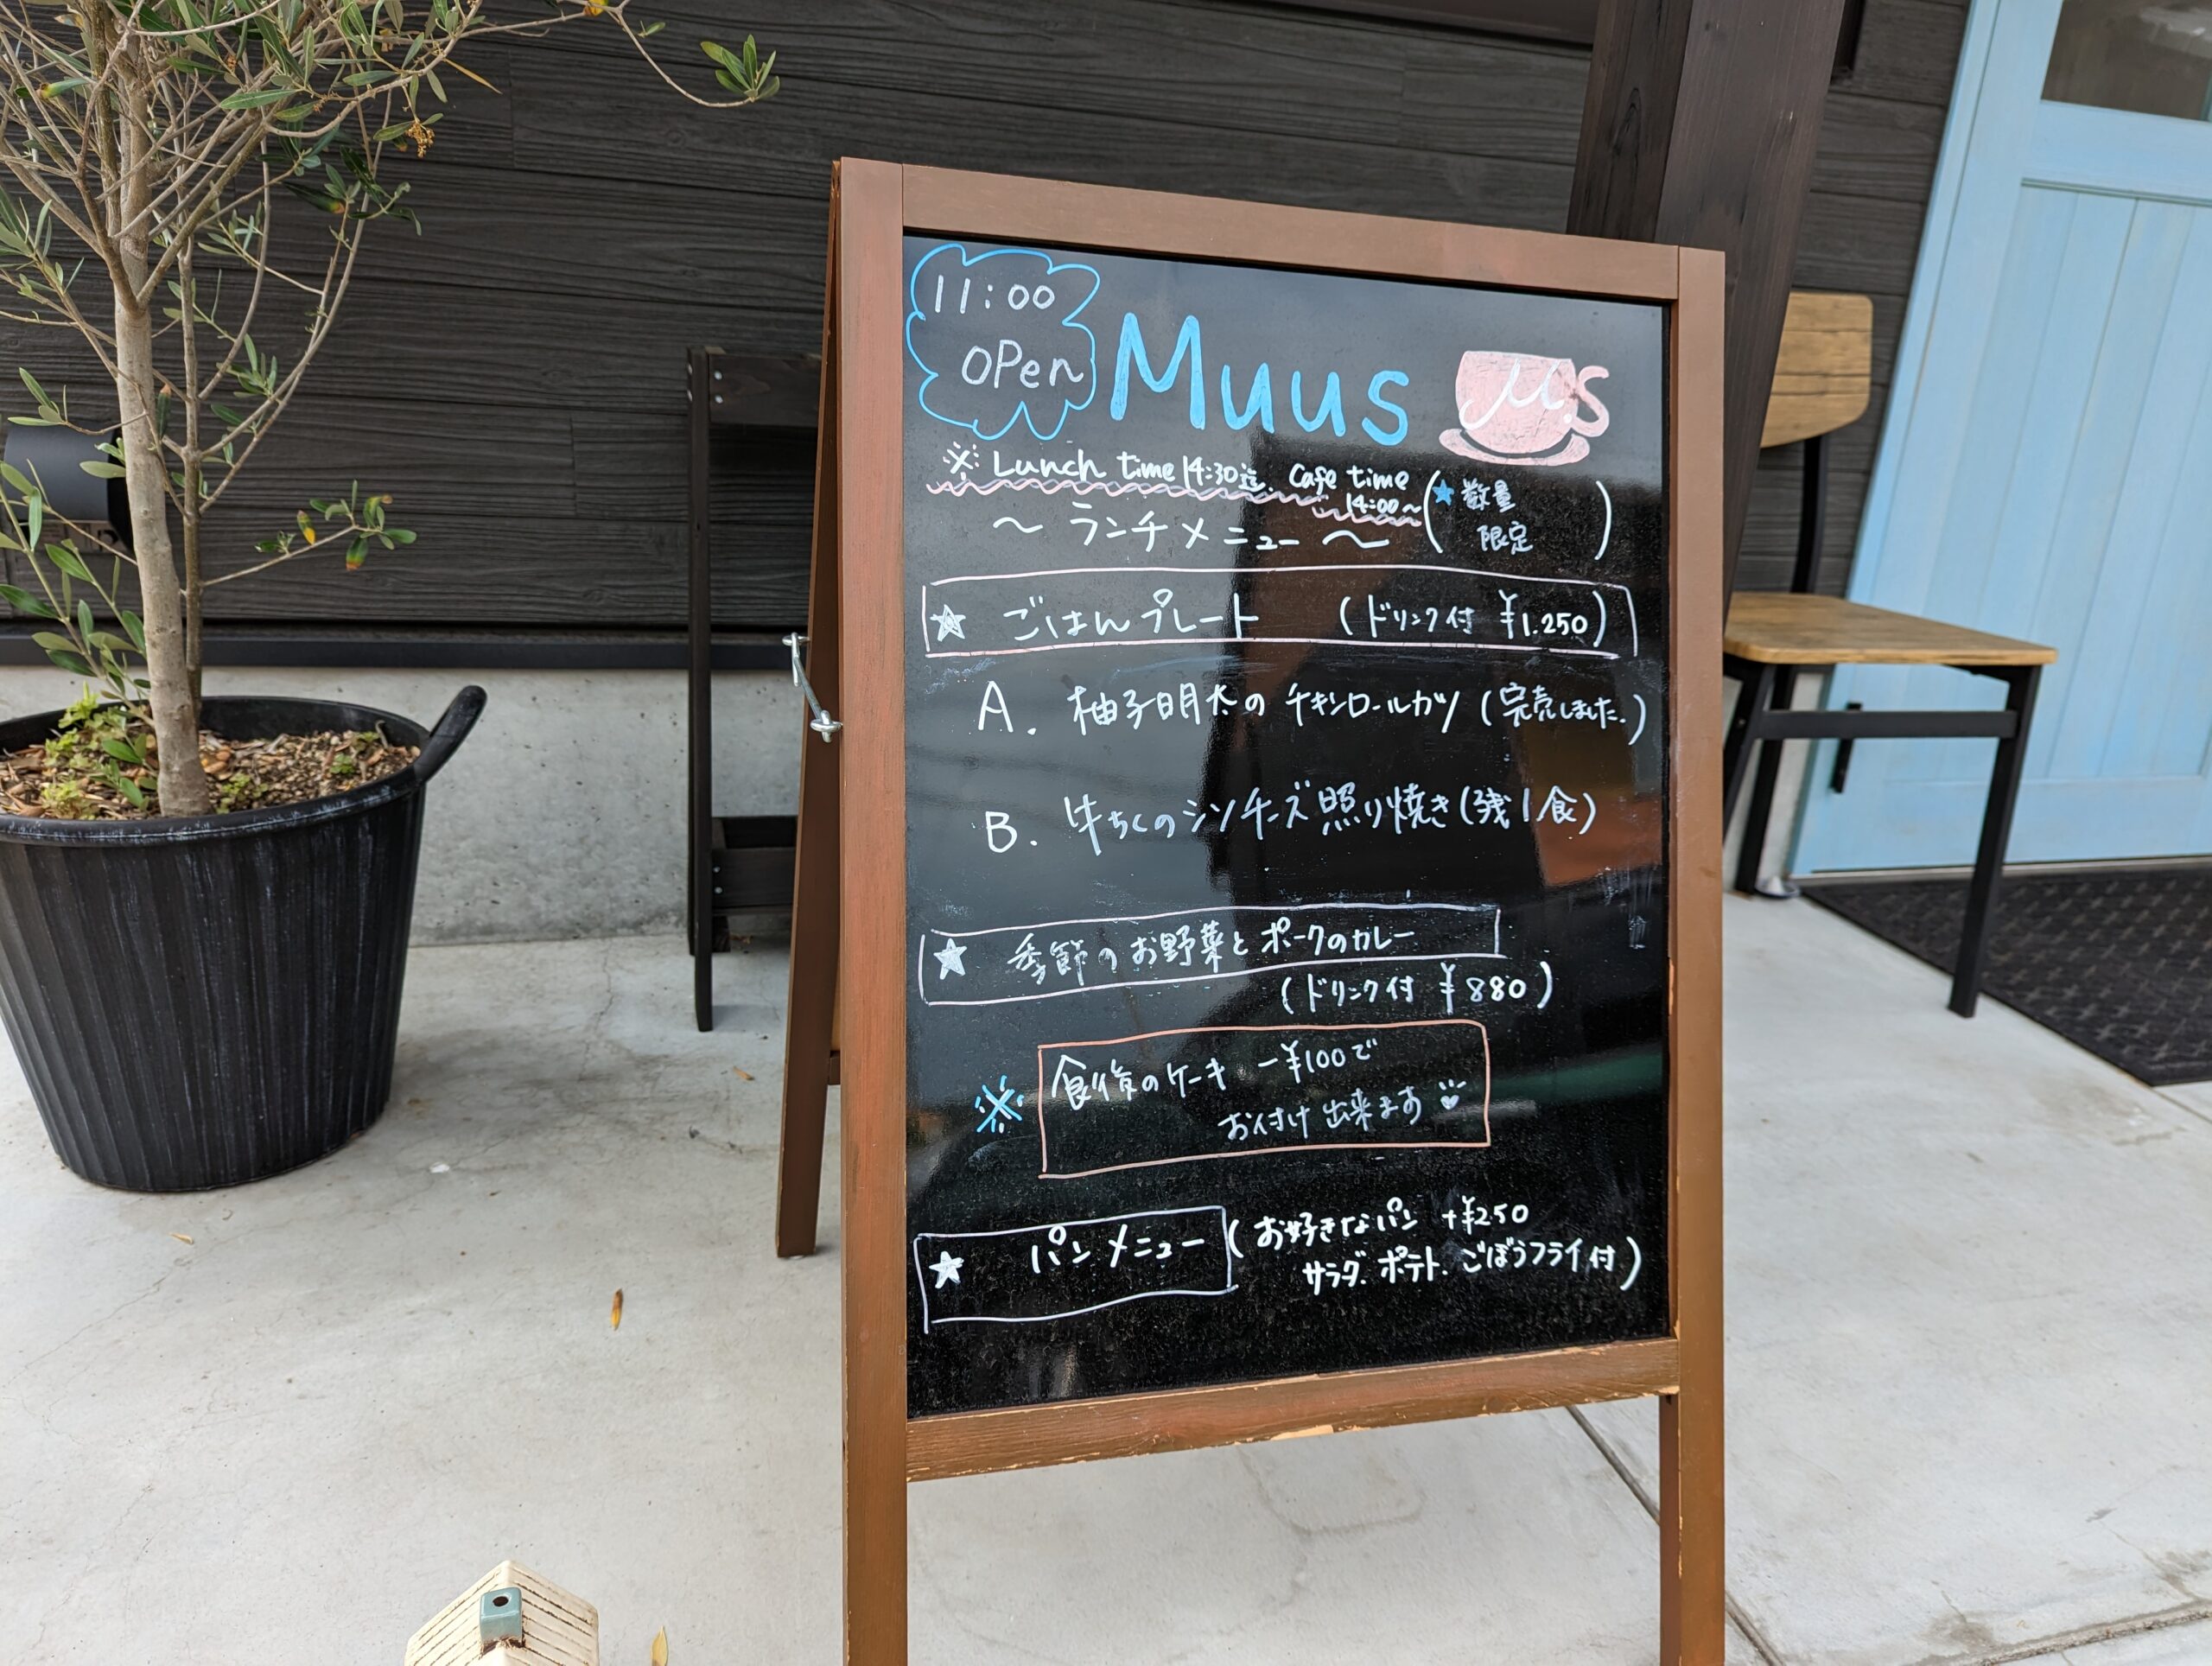 11:00
OPen
Muus
μ's
※ Lunch time 14:30迄. Cafe time
14:00~
(★数量
限定)
~ ランチメニュー ~
★ ごはんプレート (ドリンク付 ¥1.250)
A. 柚子明太の チキンロールカツ (完売しました.)
B. 牛ちくのシソチーズ照り焼き(残1食)
★ 季節のお野菜とポークのカレー
(ドリンク付 ¥880)
※ 創作のケーキ -¥100で
お付け出来ます
★ パンメニュー (お好きなパン +¥250
サラダ. ポテト. ごぼうフライ付)